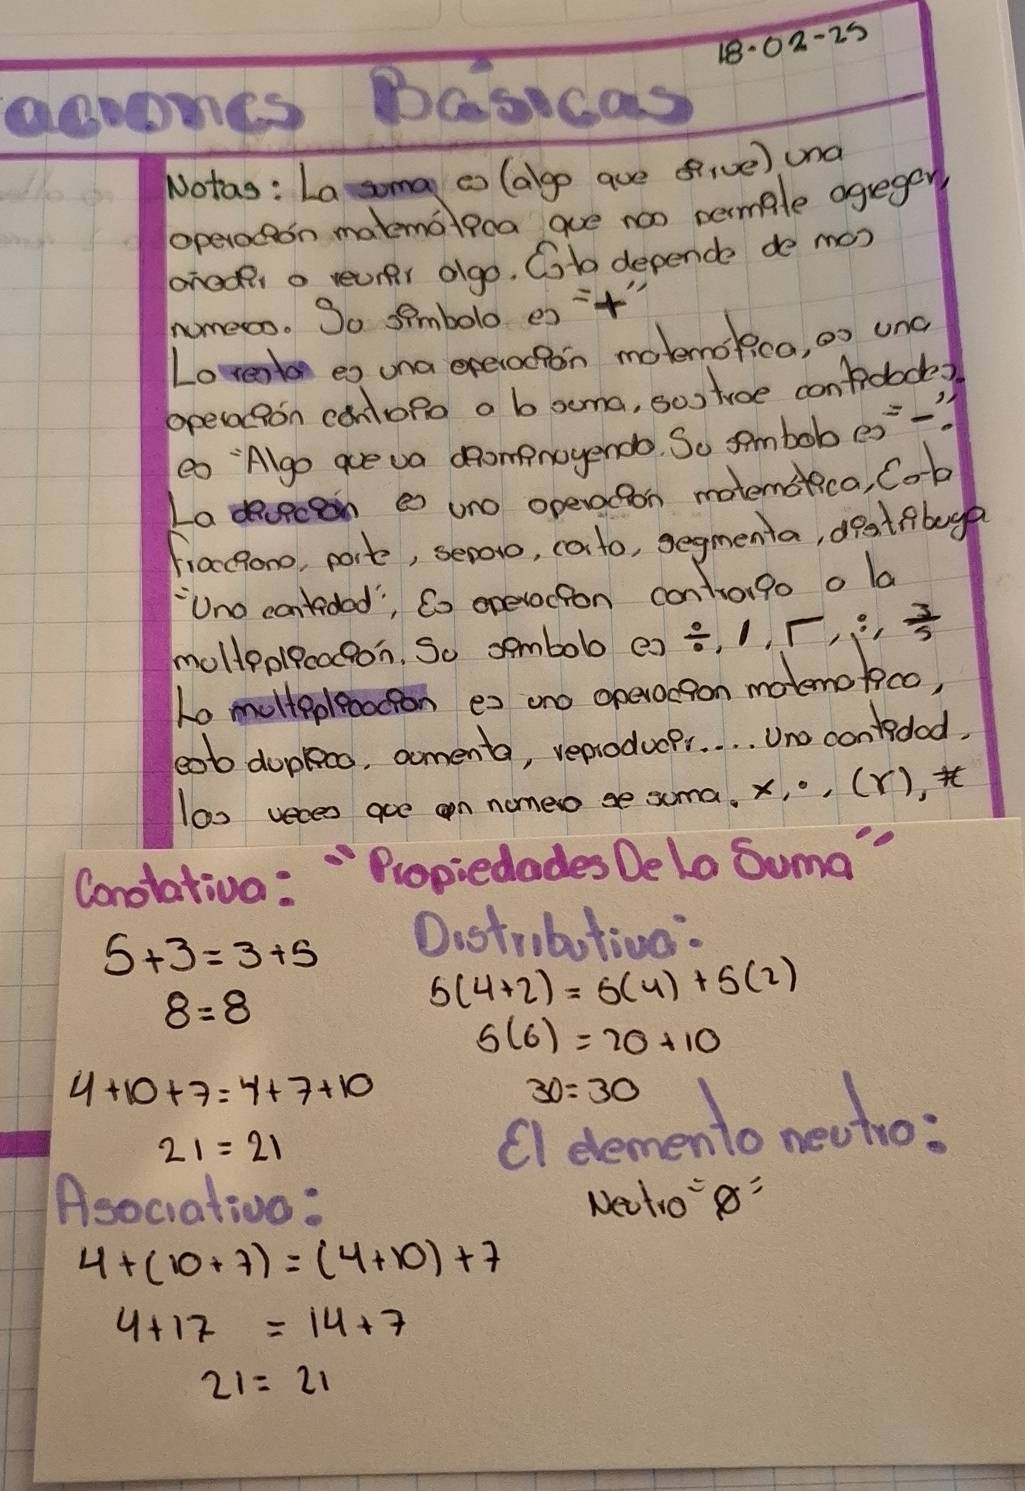 18-02-25
aciones Básicas
Notas: La suma es (algo que sirve) una
operación matemática que nos permite agregar,
añadir o reunir algo. Esto depende de mas
numeros. Su simbolo es "+"
La resta es una operación matemática, es una
operación contraria a la suma, sustrae cantidades.
es "Algo que va disminuyendo. Su simbolo es "-".
La división es una operación matemática, Esta
fracciona, parte, separa, corta, segmenta, distribuya
"Una cantidad", Es operacion contraria a la
multiplicación. Su simbolo es ÷, /, Γ, :, 3/5
La multiplicacion es una operacion matematica,
esta duplica, aumenta, reproducir.... Una cantidad.
las veces que un numero se suma. x, •, (r), *
Conotativa: "Propiedades De La Suma"
5+3=3+5
8=8
4+10+7=4+7+10
21=21
Asociativa:
4+(10+7)=(4+10)+7
4+17 = 14+7
21=21
Distributiva:
5(4+2)=5(4)+5(2)
5(6)=20+10
30=30
El elemento neutro:
Neutro "0"